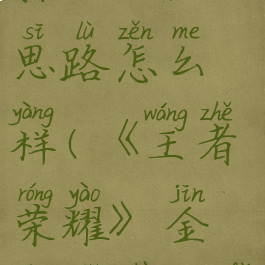 sī lù zěn me
思路怎么
yàng wáng zhě
样(《王者
róng yào jīn
荣耀》金